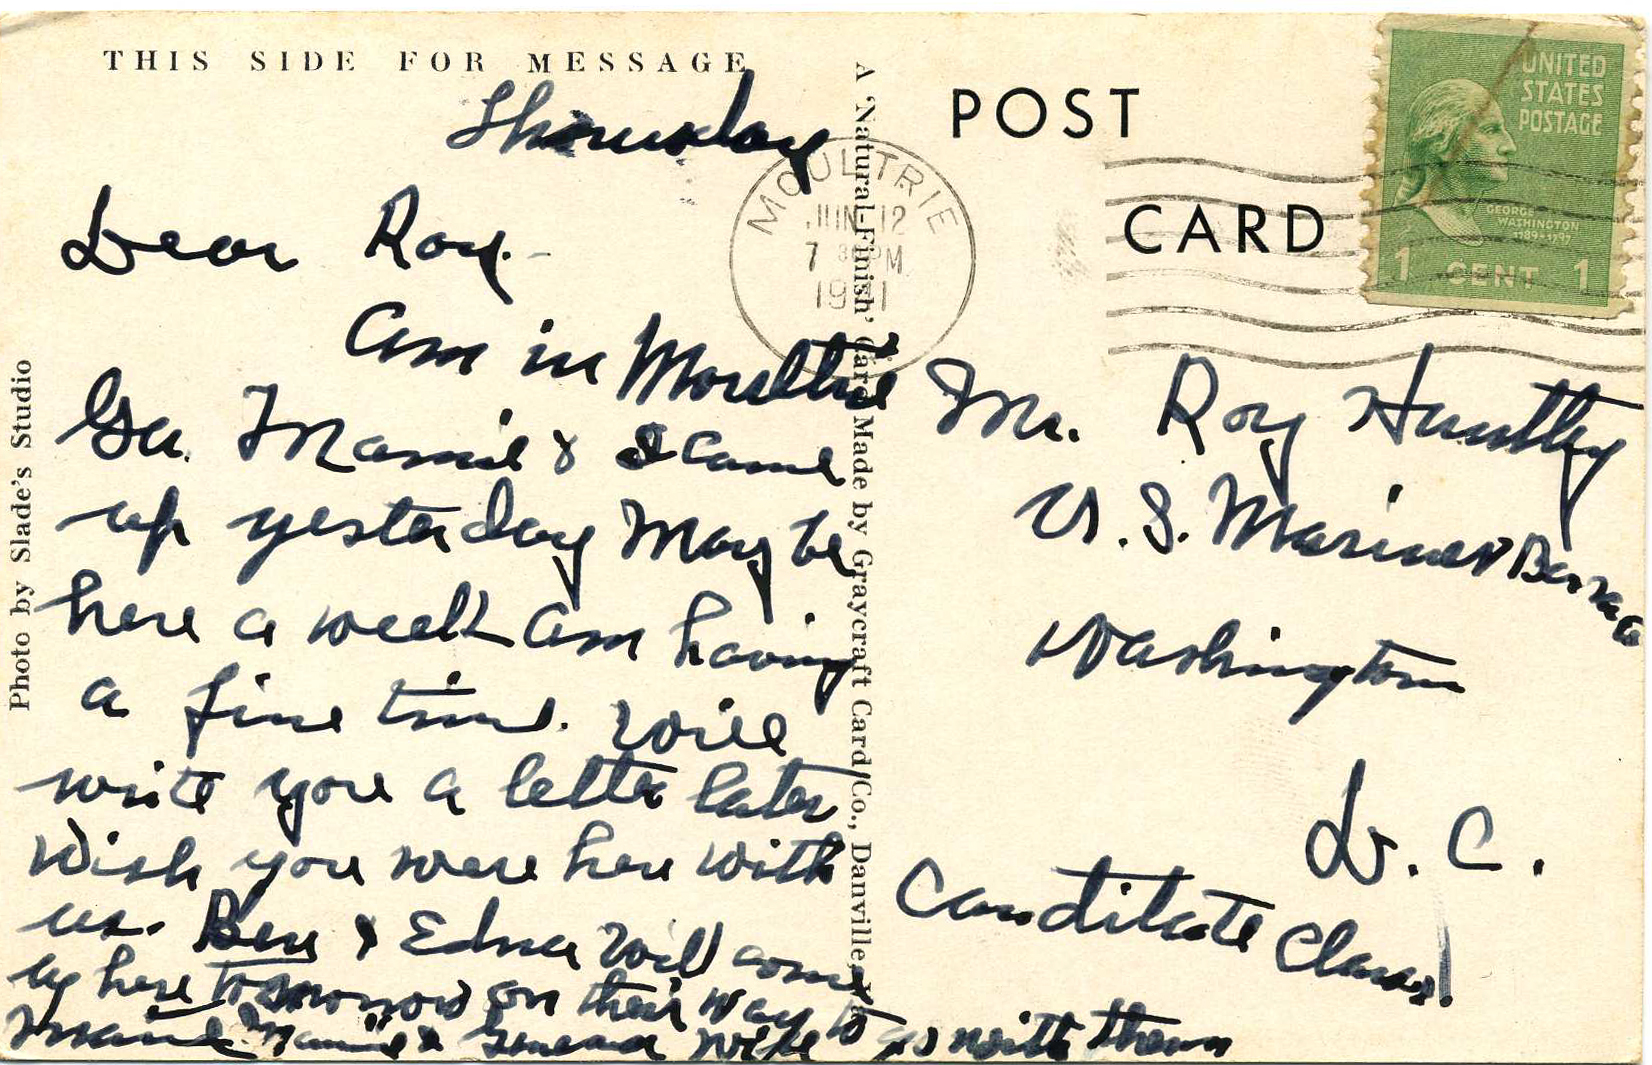 THIS SIDE FOR MESSAGE
Thursday
Dear Roy.-
Am in Moultrie
Ga. Mamie & I came
up yesterday May be
here a week am having
a fine time. Will
write you a letter later
Wish you were here with
us. Ben & Edna will come
up here tomorrow on their way to
Maine Mamie & will go with them
Photo by Slade's Studio
A 'Natural-Finish' Card Made by Graycraft Card Co., Danville, Va.
POST
CARD
MOULTRIE
JUN 12
7 30 PM
1941
UNITED
STATES
POSTAGE
GEORGE
WASHINGTON
1789-1797
1 CENT 1
Mr. Roy Huntley
U. S. Marines
Washington
D. C.
Canditate Class.